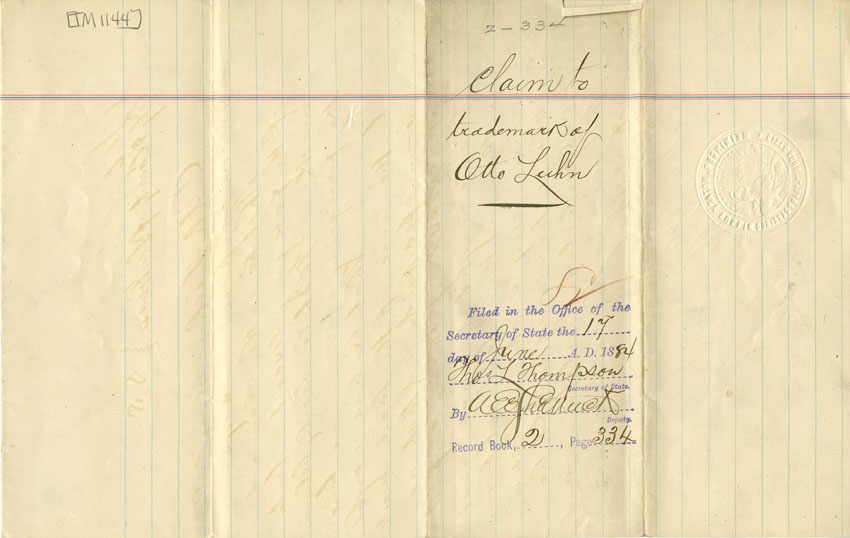 TM1144
2-334
Claim to
trademark of
Otto Luhn
Filed in the Office of the
Secretary of State the 17
day of June A. D. 1884
Thos L Thompson
Secretary of State.
By
Deputy.
Record Book, 2, Page 334